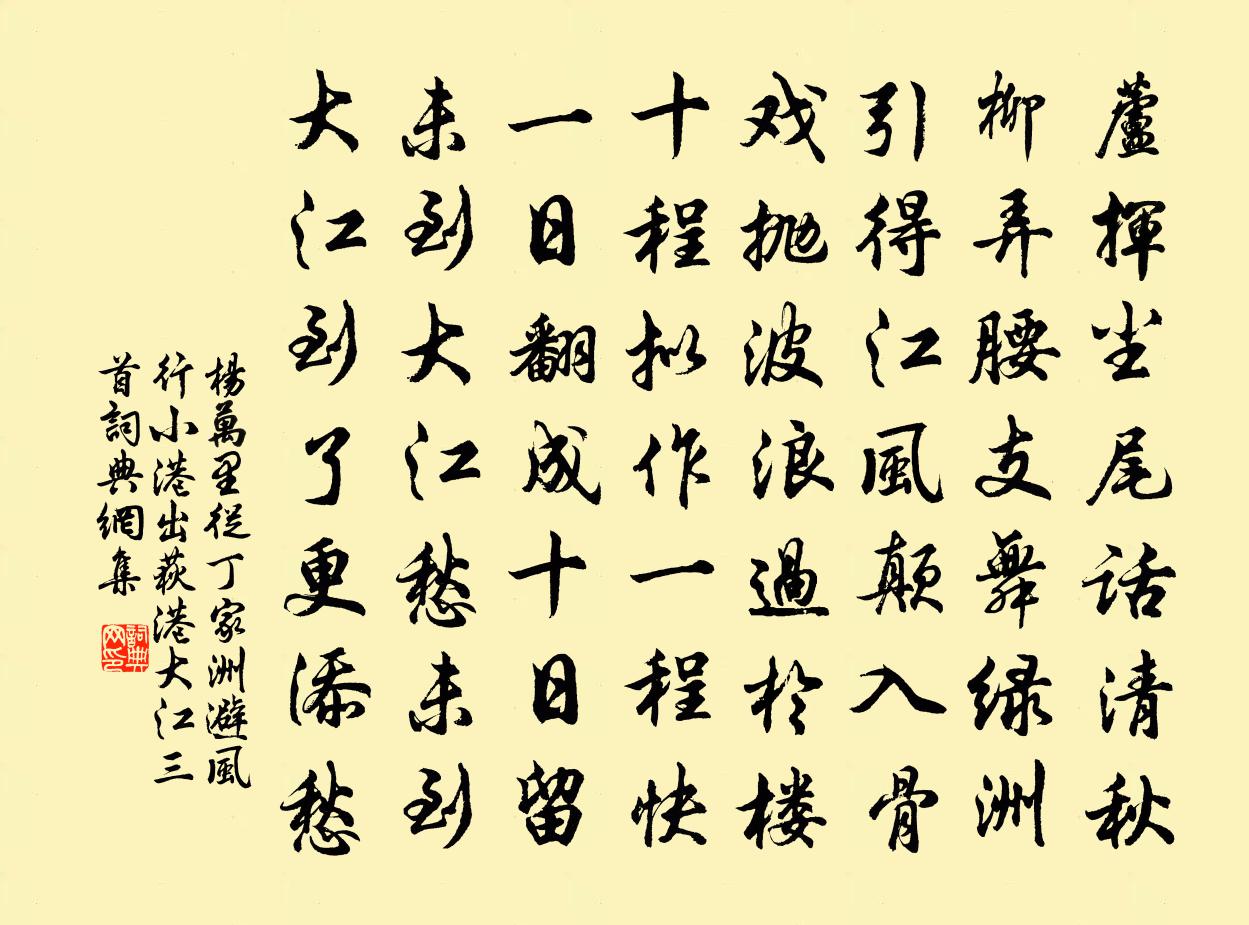 蘆揮尘尾话清秋
柳弄腰支舞绿洲
引得江風颠入骨
戏抛波浪過於楼
十程拟作一程快
一日翻成十日留
未到大江愁未到
大江到了更添愁
楊萬里從丁家洲避風
行小港出荻港大江三
首詞典網集
詞典网印